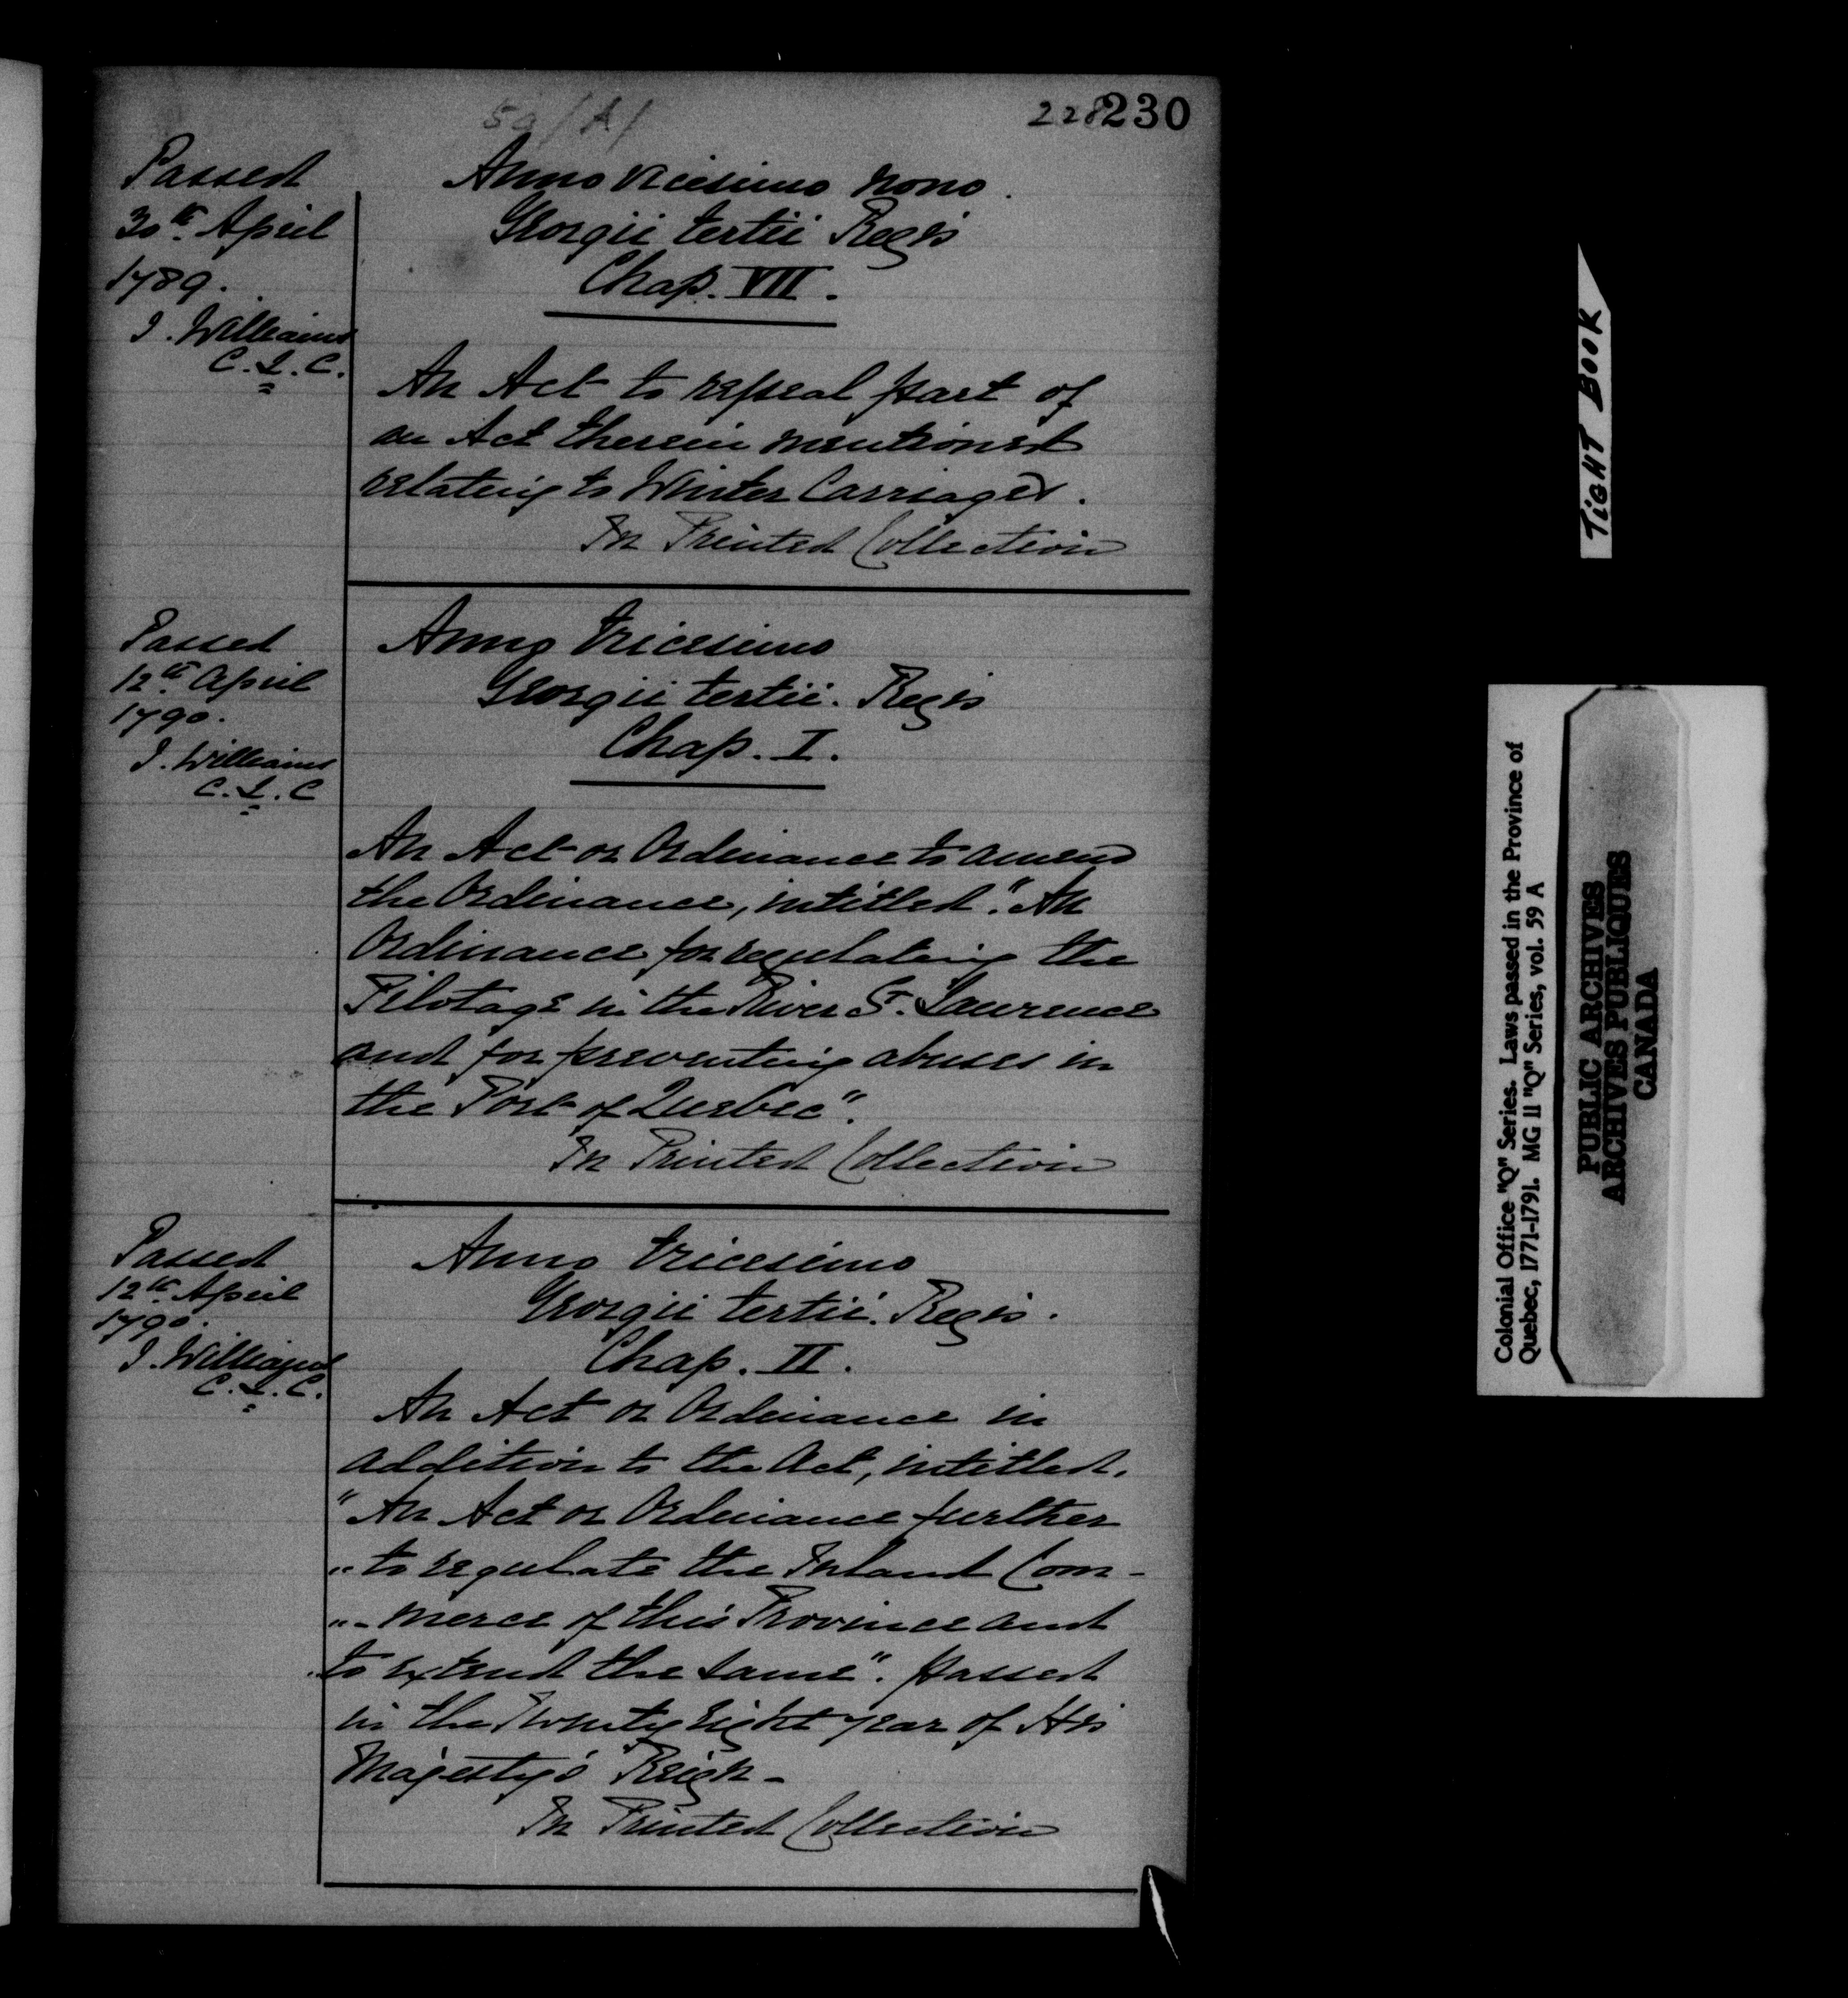 59/A/
228 230
Passed
30th April
1789.
J. Williams
C.L.C.
Anno vicesimo nono.
Georgii tertii Regis
Chap. VII.
An Act to repeal part of
an Act therein mentioned
relating to Winter Carriages.
In Printed Collection
Passed
12th April
1790.
J. Williams
C.L.C
Anno tricesimo
Georgii tertii. Regis
Chap. I.
An Act or Ordinance to amend
the Ordinance, intitled. "An
Ordinance for regulating the
Pilotage in the River St. Laurence
and for preventing abuses in
the Port of Quebec".
In Printed Collection
Passed
12th April
1790.
J. Williams
C.L.C.
Anno tricesimo
Georgii tertii. Regis.
Chap. II.
An Act or Ordinance in
addition to the Act, intitled.
"An Act or Ordinance further
"to regulate the Inland Com-
"-merce of this Province and
to extend the same". passed
in the Twenty eight year of His
Majesty's Reign -
In Printed Collection
TIGHT BOOK
Colonial Office "Q" Series. Laws passed in the Province of
Quebec, 1771-1791. MG 11 "Q" Series, vol. 59 A
PUBLIC ARCHIVES
ARCHIVES PUBLIQUES
CANADA